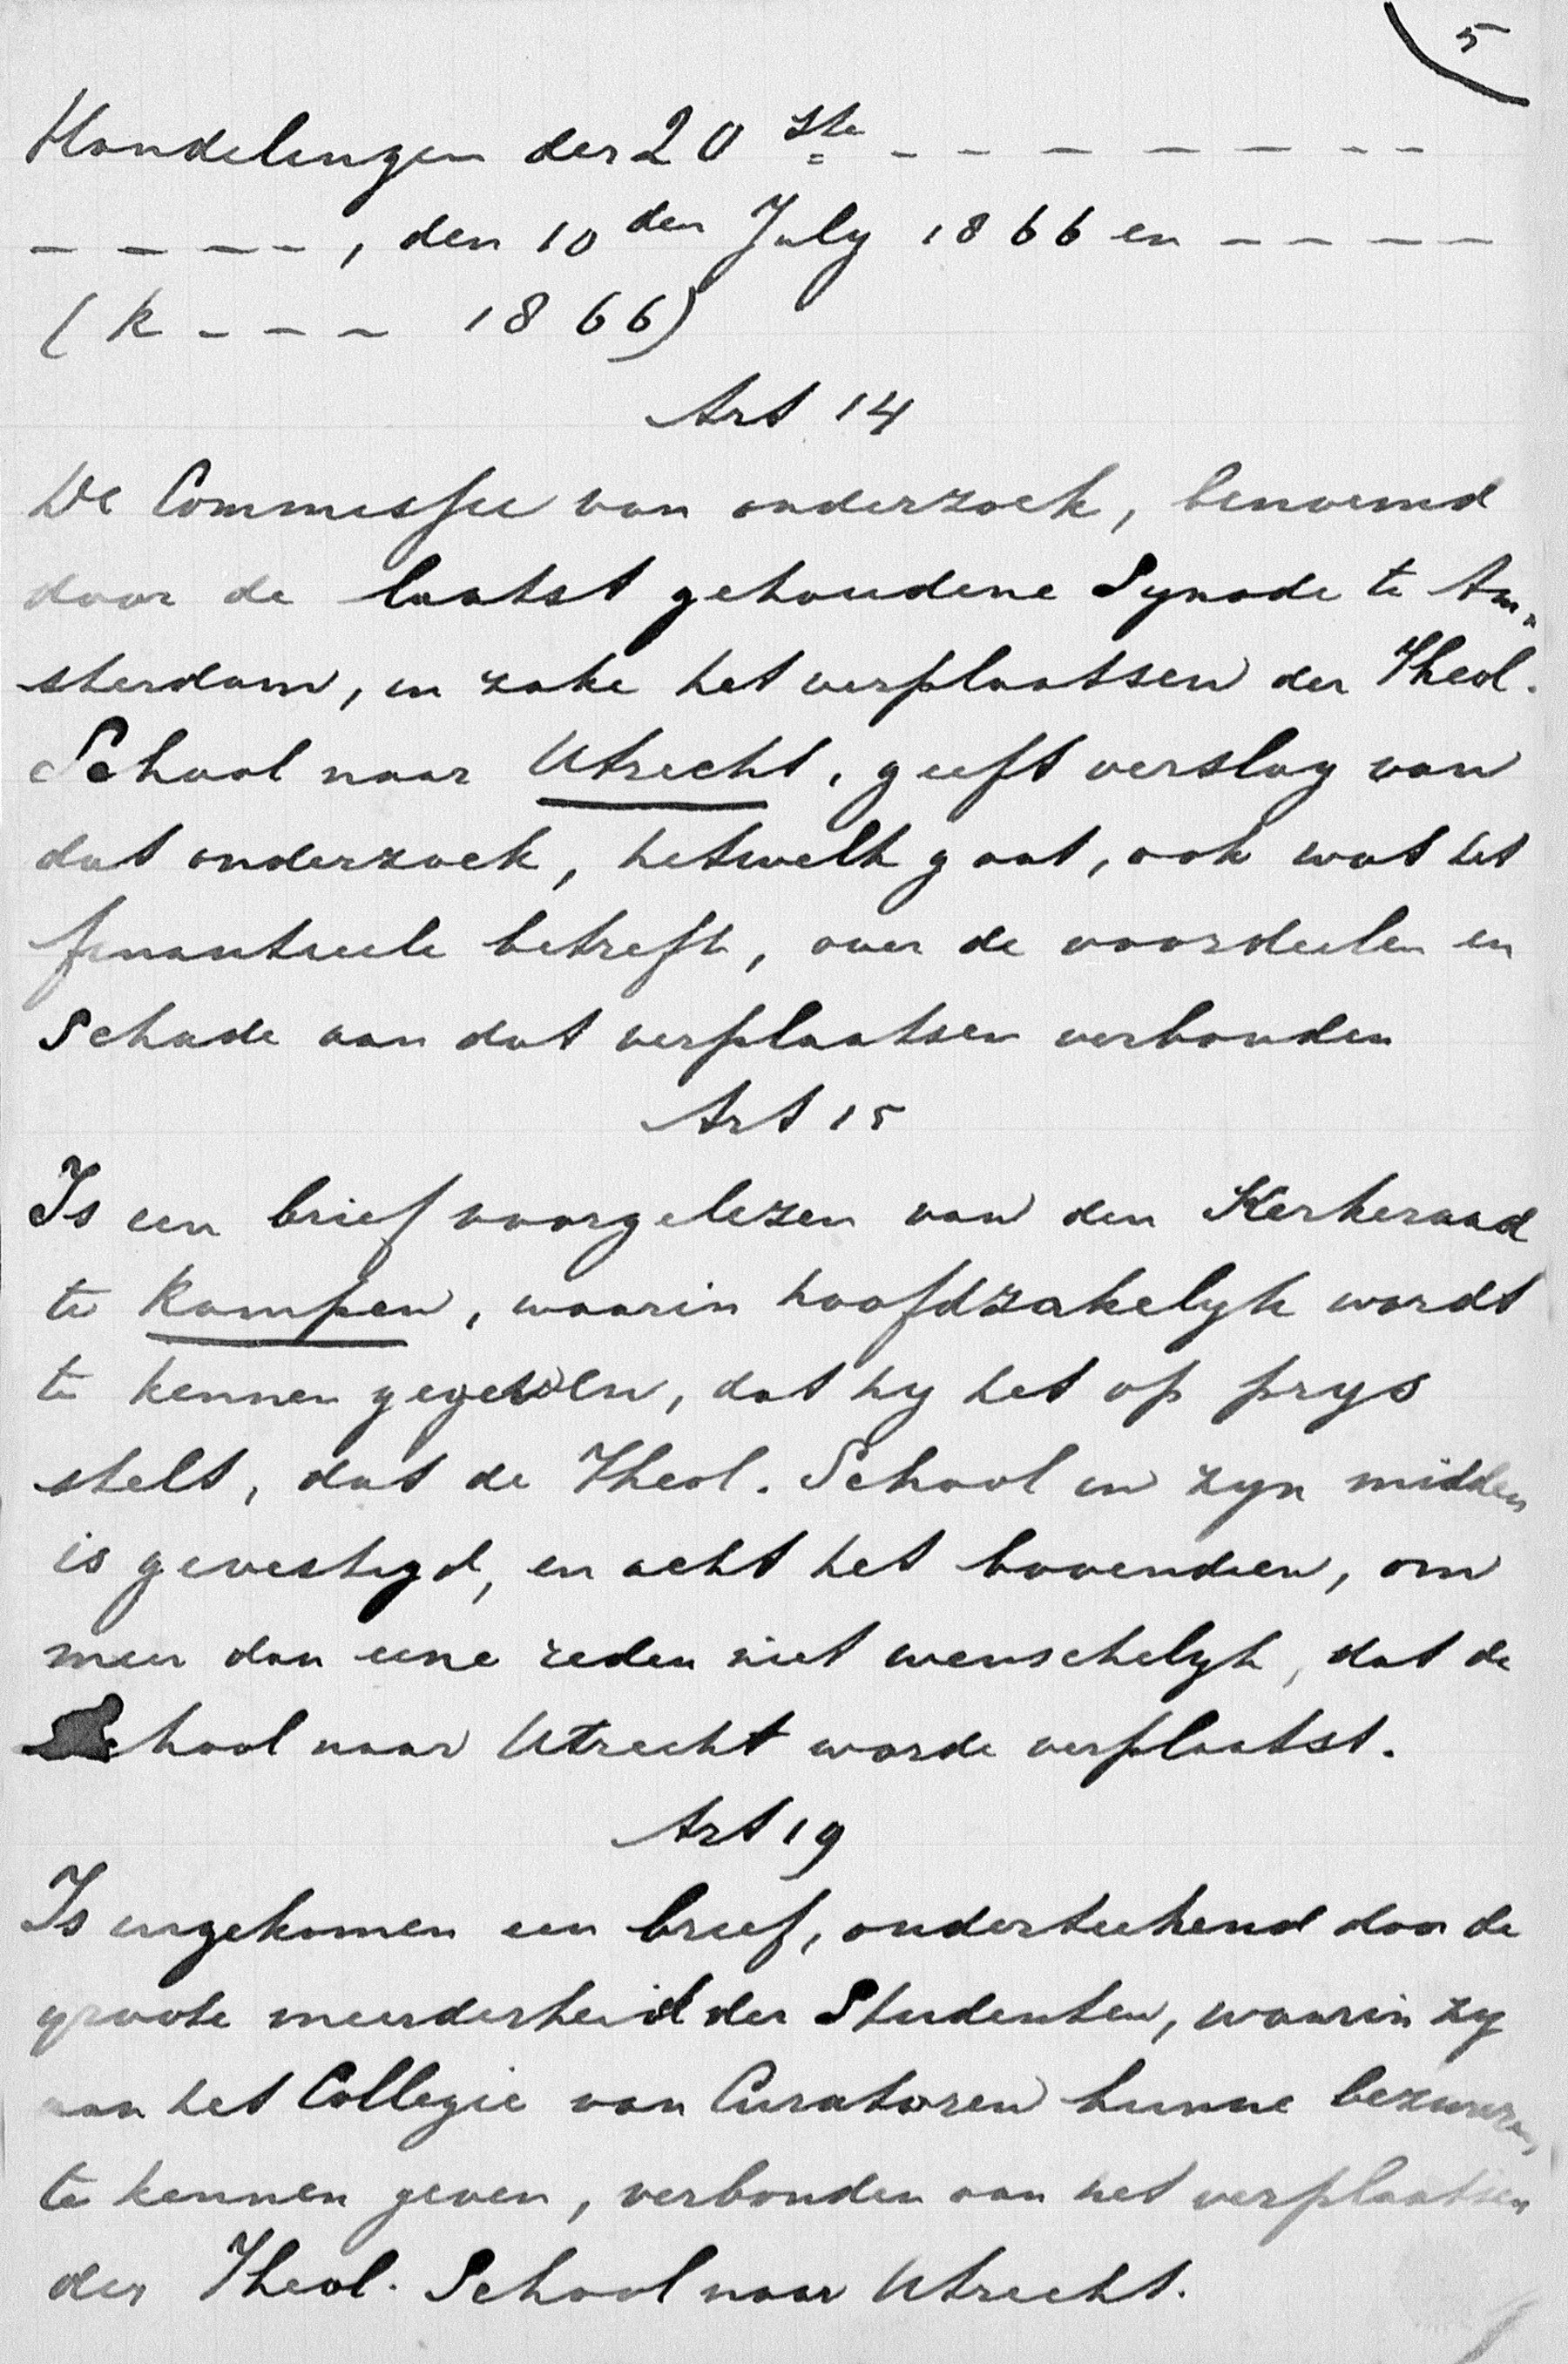 5
Handelingen der 20ste - - - - - - - -
- - - - , den 10den July 1866 en - - - -
( K - - - 1866)
Art 14
De Commissie van onderzoek, benoemd
door de laatst gehoudene Synode te Am„
sterdam, in zake het verplaatsen der Theol.
School naar Utrecht, geeft verslag van
dat onderzoek, hetwelk gaat, ook wat het
finantieele betreft, over de voordeelen en
schade aan dat verplaatsen verbonden
Art 15
Is een brief voorgelezen van den Kerkeraad
te Kampen, waarin hoofdzakelyk wordt
te kennen gegeven, dat hy het op prys
stelt, dat de Theol. School in zyn midden
is gevestigd, en acht het bovendien, om
meer dan eene reden niet wenschelyk, dat de
School naar Utrecht worde verplaatst.
Art 19
Is ingekomen een brief, onderteekend door de
groote meerderheid der Studenten, waarin zy
aan het Collegie van Curatoren hunne bezwaren,
te kennen geven, verbonden aan het verplaatsen
der Theol. School naar Utrecht.